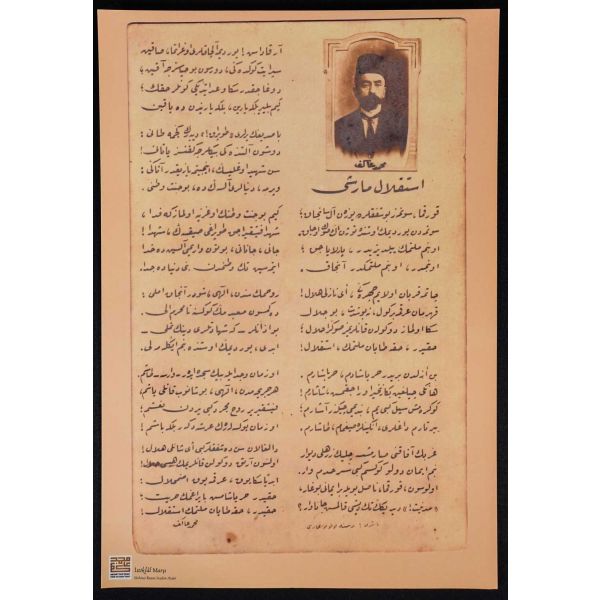 محمد عاكف
استقلال مارشى
قورقما، سونمز بو شفقلرده يوزن آل سانجاق؛
سونمدن يوردمك اوستنده توتن اك صوك اوجاق.
او بنم ملتمك ييلديزيدر، پارلاياجق؛
او بنمدر، او بنم ملتمكدر آنجاق.
چاتمه قربان اولايم چهره كى، اى نازلى هلال!
قهرمان عرقمه بر كول... نه بو شدت، بو جلال؟
سكا اولماز دوكولن قانلريمز صوكرا حلال؛
حقيدر، حقه طاپان ملتمك، استقلال!
بن ازلدن بريدر حر ياشادم، حر ياشارم.
هانكى چيلغين بكا زنجير اوراجقمش؟ شاشارم!
كوكره مش سيل كبى يم، بندمى چيكنر، آشارم.
ييرتارم داغلرى، انكينلره صيغمام، طاشارم.
غربك آفاقنى صارمشسه چليك زرهلى ديوار،
بنم ايمان دولو كوكسم كبى سرحدم وار.
اولوسون، قورقما! ناصل بويله بر ايمانى بوغار،
«مدنيت!» ديديكك تك ديشى قالمش جاناوار؟
آرقاداش! يورديمه آلچاقلرى اوغراتما، صاقين.
سپر ايت كوكده كى، دورسون بو حياسزجه آقين.
دوغاجقدر سكا وعد ايتديكى كونلر حقك؛
كيم بيلير، بلكه يارين، بلكه ياريندن ده ياقين.
باصديغك يرلرى «طوپراق!» ديه رك كچمه، طانى!
دوشون آلتنده كى بيكلرجه كفنسز ياتانى!
سن شهيد اوغليسك، اينجيتمه، يازيقدر، آتاكى؛
ويرمه، دنيالرى آلسه ك ده، بو جنت وطنى.
كيم بو جنت وطنك اوغرينه اولماز كه فدا؟
شهدا فيشقيراجق طوپراغى صيقسه ك، شهدا!
جانى، جانانى، بوتون واريمى آلسين ده خدا،
ايتمه سين تك وطنمدن بنى دنياده جدا.
روحمك سندن، الهى، شودر آنجاق املى:
دكمه سين معبدمك كوكسنه نامحرم الى؛
بو اذانلر - كه شهادتلرى دينك تملى -
ابدى، يوردمك اوستنده بنم ايكله ملى.
او زمان وجد ايله بيك سجده ايدر - وارسه - طاشم؛
هر جريحه مدن، الهى، بوشانوب قانلى ياشم،
فيشقيرير روح مجرد كبى يردن نعشم؛
او زمان يوكسه له رك عرشه دكر، بلكه، باشم!
دالغالان سن ده شفقلر كبى اى شانلى هلال!
اولسون آرتق دوكولن قانلريمك هپسى حلال!
ابديا سكا يوق، عرقمه يوق اضمحلال:
حقيدر، حر ياشامش بايراغمك حريت؛
حقيدر، حقه طاپان ملتمك استقلال!
محمد عاكف
İstiklâl Marşı